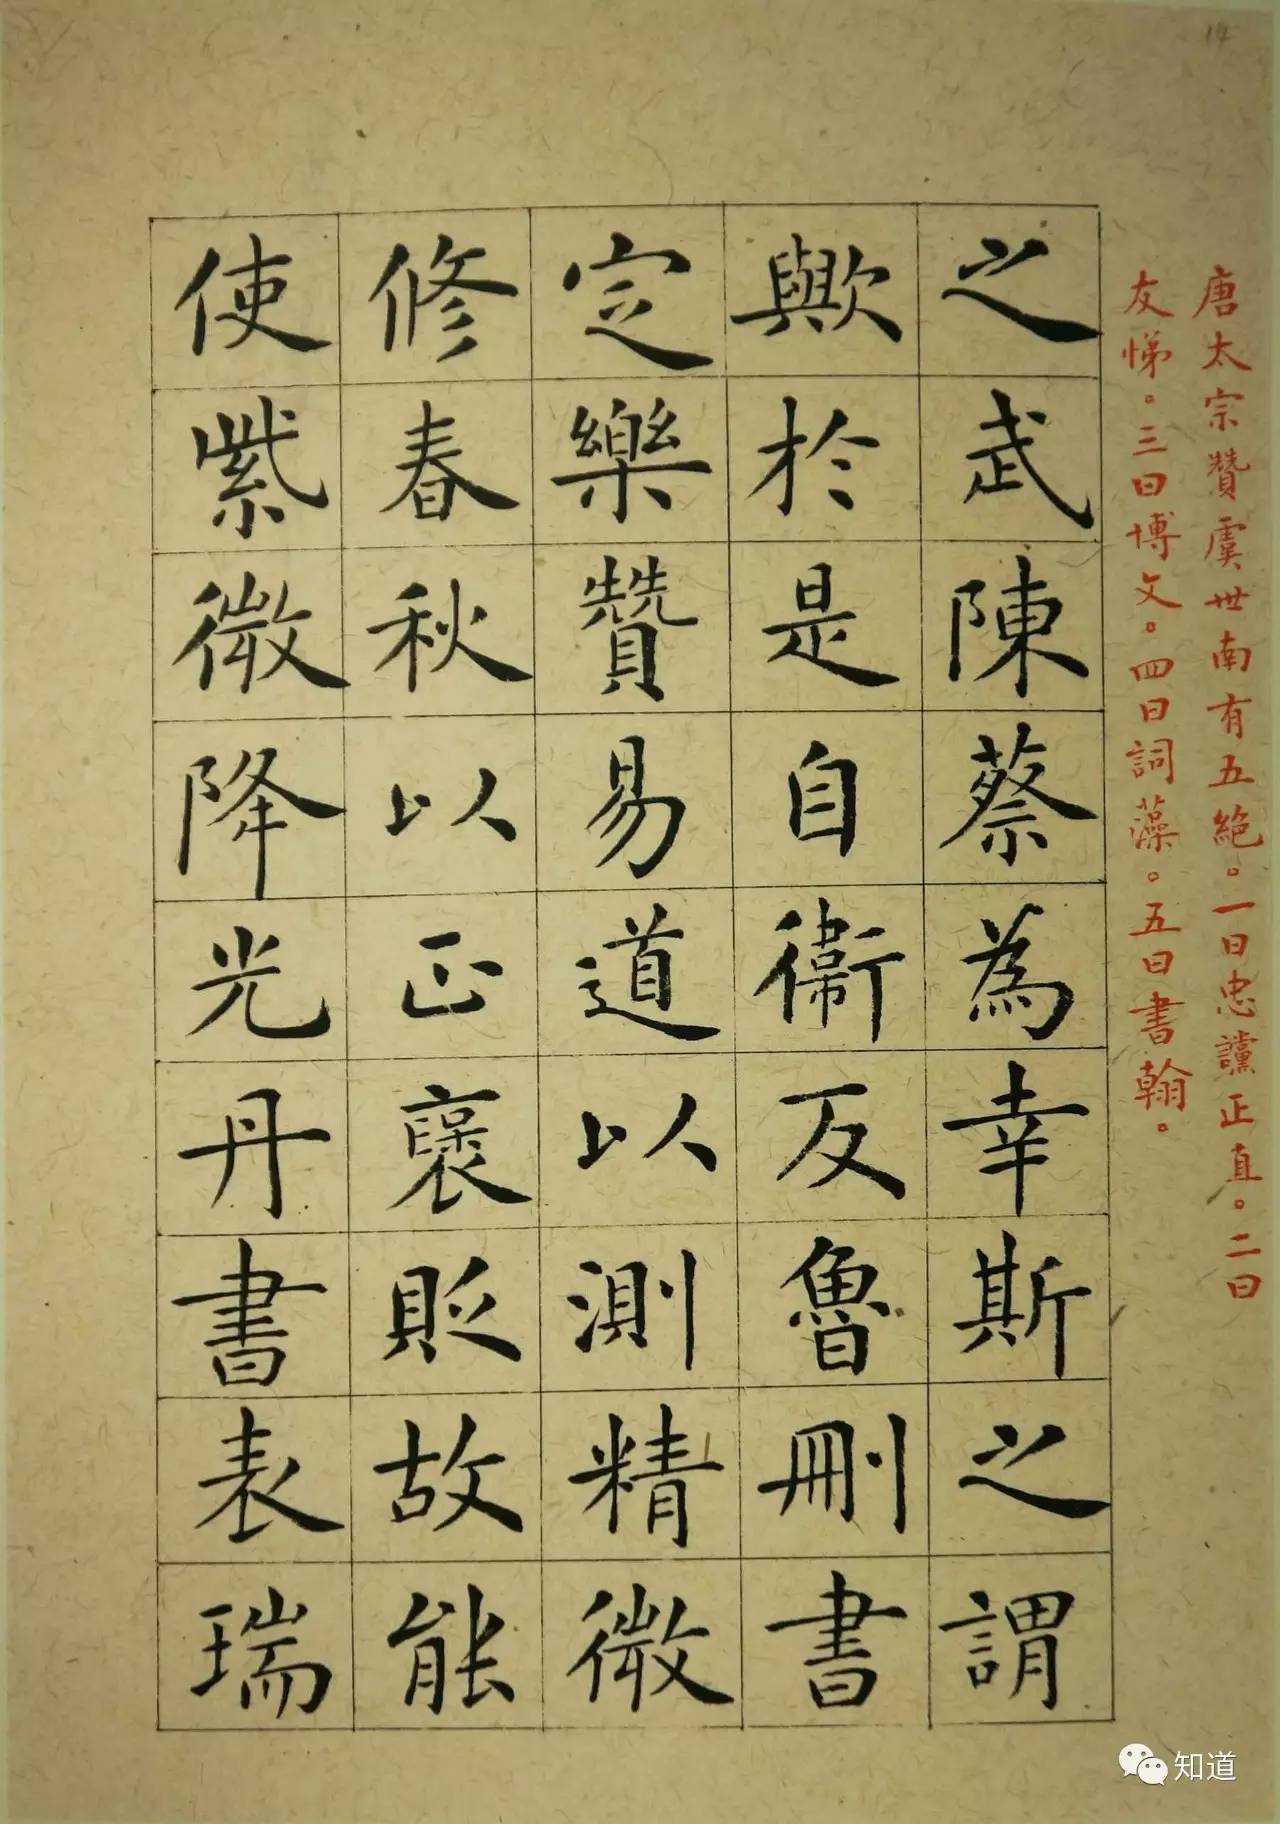 14
唐太宗贊虞世南有五絕。一曰忠讜正直。二曰
友悌。三曰博文。四曰詞藻。五曰書翰。
之武陳蔡為幸斯之謂
歟於是自衛反魯刪書
定樂贊易道以測精微
修春秋以正褒貶故能
使紫微降光丹書表瑞
知道